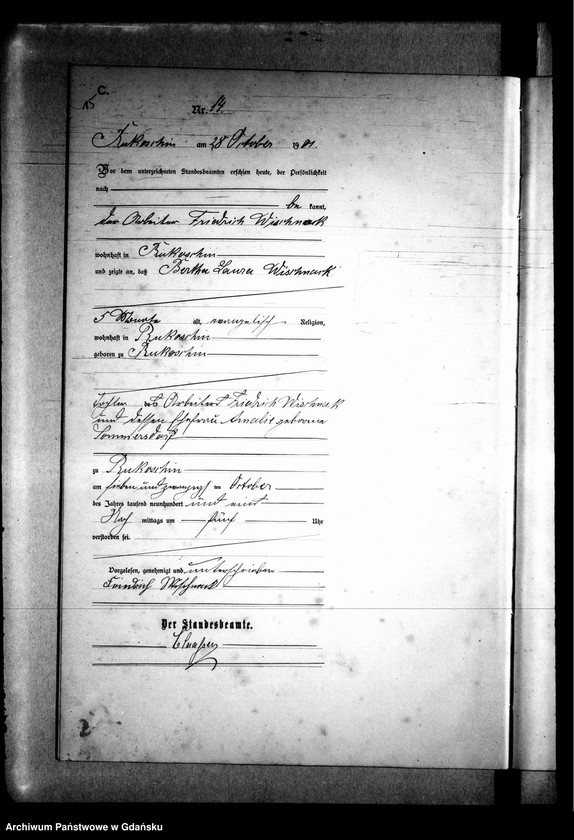 C.
15
Nr. 14.
Rukoschin am 28 October 1901.
Vor dem unterzeichneten Standesbeamten erschien heute, der Persönlichkeit
nach
be kannt,
der Arbeiter Friedrich Wischneck
wohnhaft in Rukoschin
und zeigte an, daß Bertha Laura Wischneck
5 Monate alt, evangelisch Religion,
wohnhaft in Rukoschin
geboren zu Rukoschin
Tochter des Arbeiters Friedrich Wischneck
und dessen Ehefrau Amalie geborene
Sommersdorf
zu Rukoschin
am sieben und zwanzigsten October
des Jahres tausend neunhundert und eins
Nach mittags um fünf Uhr
verstorben sei.
Vorgelesen, genehmigt und unterschrieben
Friedrich Wischneck
Der Standesbeamte.
Claaßen
2
Archiwum Państwowe w Gdańsku